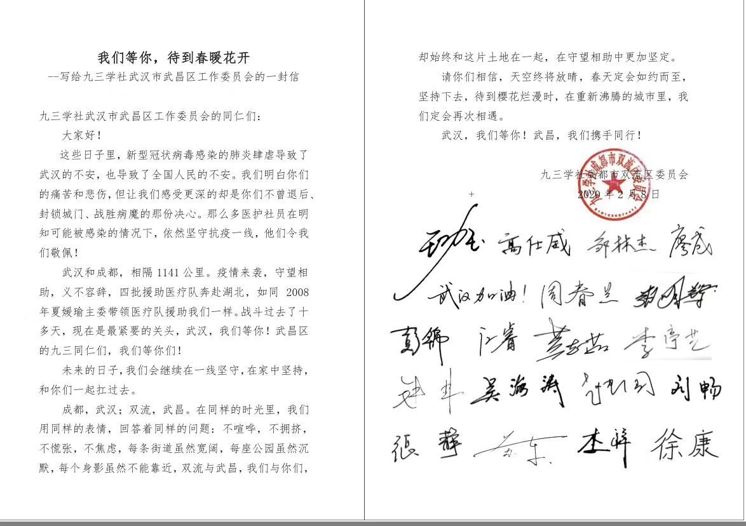 我们等你，待到春暖花开
--写给九三学社武汉市武昌区工作委员会的一封信
九三学社武汉市武昌区工作委员会的同仁们：
大家好！
这些日子里，新型冠状病毒感染的肺炎肆虐导致了
武汉的不安，也导致了全国人民的不安。我们明白你们
的痛苦和悲伤，但让我们感受更深的却是你们不曾退后、
封锁城门、战胜病魔的那份决心。那么多医护社员在明
知可能被感染的情况下，依然坚守抗疫一线，他们令我
们敬佩！
武汉和成都，相隔 1141 公里。疫情来袭，守望相
助，义不容辞，四批援助医疗队奔赴湖北，如同 2008
年夏媛瑜主委带领医疗队援助我们一样。战斗过去了十
多天，现在是最紧要的关头，武汉，我们等你！武昌区
的九三同仁们，我们等你们！
未来的日子,我们会继续在一线坚守,在家中坚持,
和你们一起扛过去。
成都，武汉；双流，武昌。在同样的时光里，我们
用同样的表情，回答着同样的问题：不喧哗，不拥挤，
不慌张，不焦虑，每条街道虽然宽阔，每座公园虽然沉
默,每个身影虽然不能靠近,双流与武昌,我们与你们,
却始终和这片土地在一起，在守望相助中更加坚定。
请你们相信，天空终将放晴，春天定会如约而至，
坚持下去，待到樱花烂漫时，在重新沸腾的城市里，我
们定会再次相遇。
武汉，我们等你！武昌，我们携手同行！
九三学社成都市双流区委员会
2020 年 2 月 8 日
高仕成 邹林杰 廖成
武汉加油！周春兰
彭锦 江睿 李序艺
吴海涛 刘畅
张静 杢梓 徐康